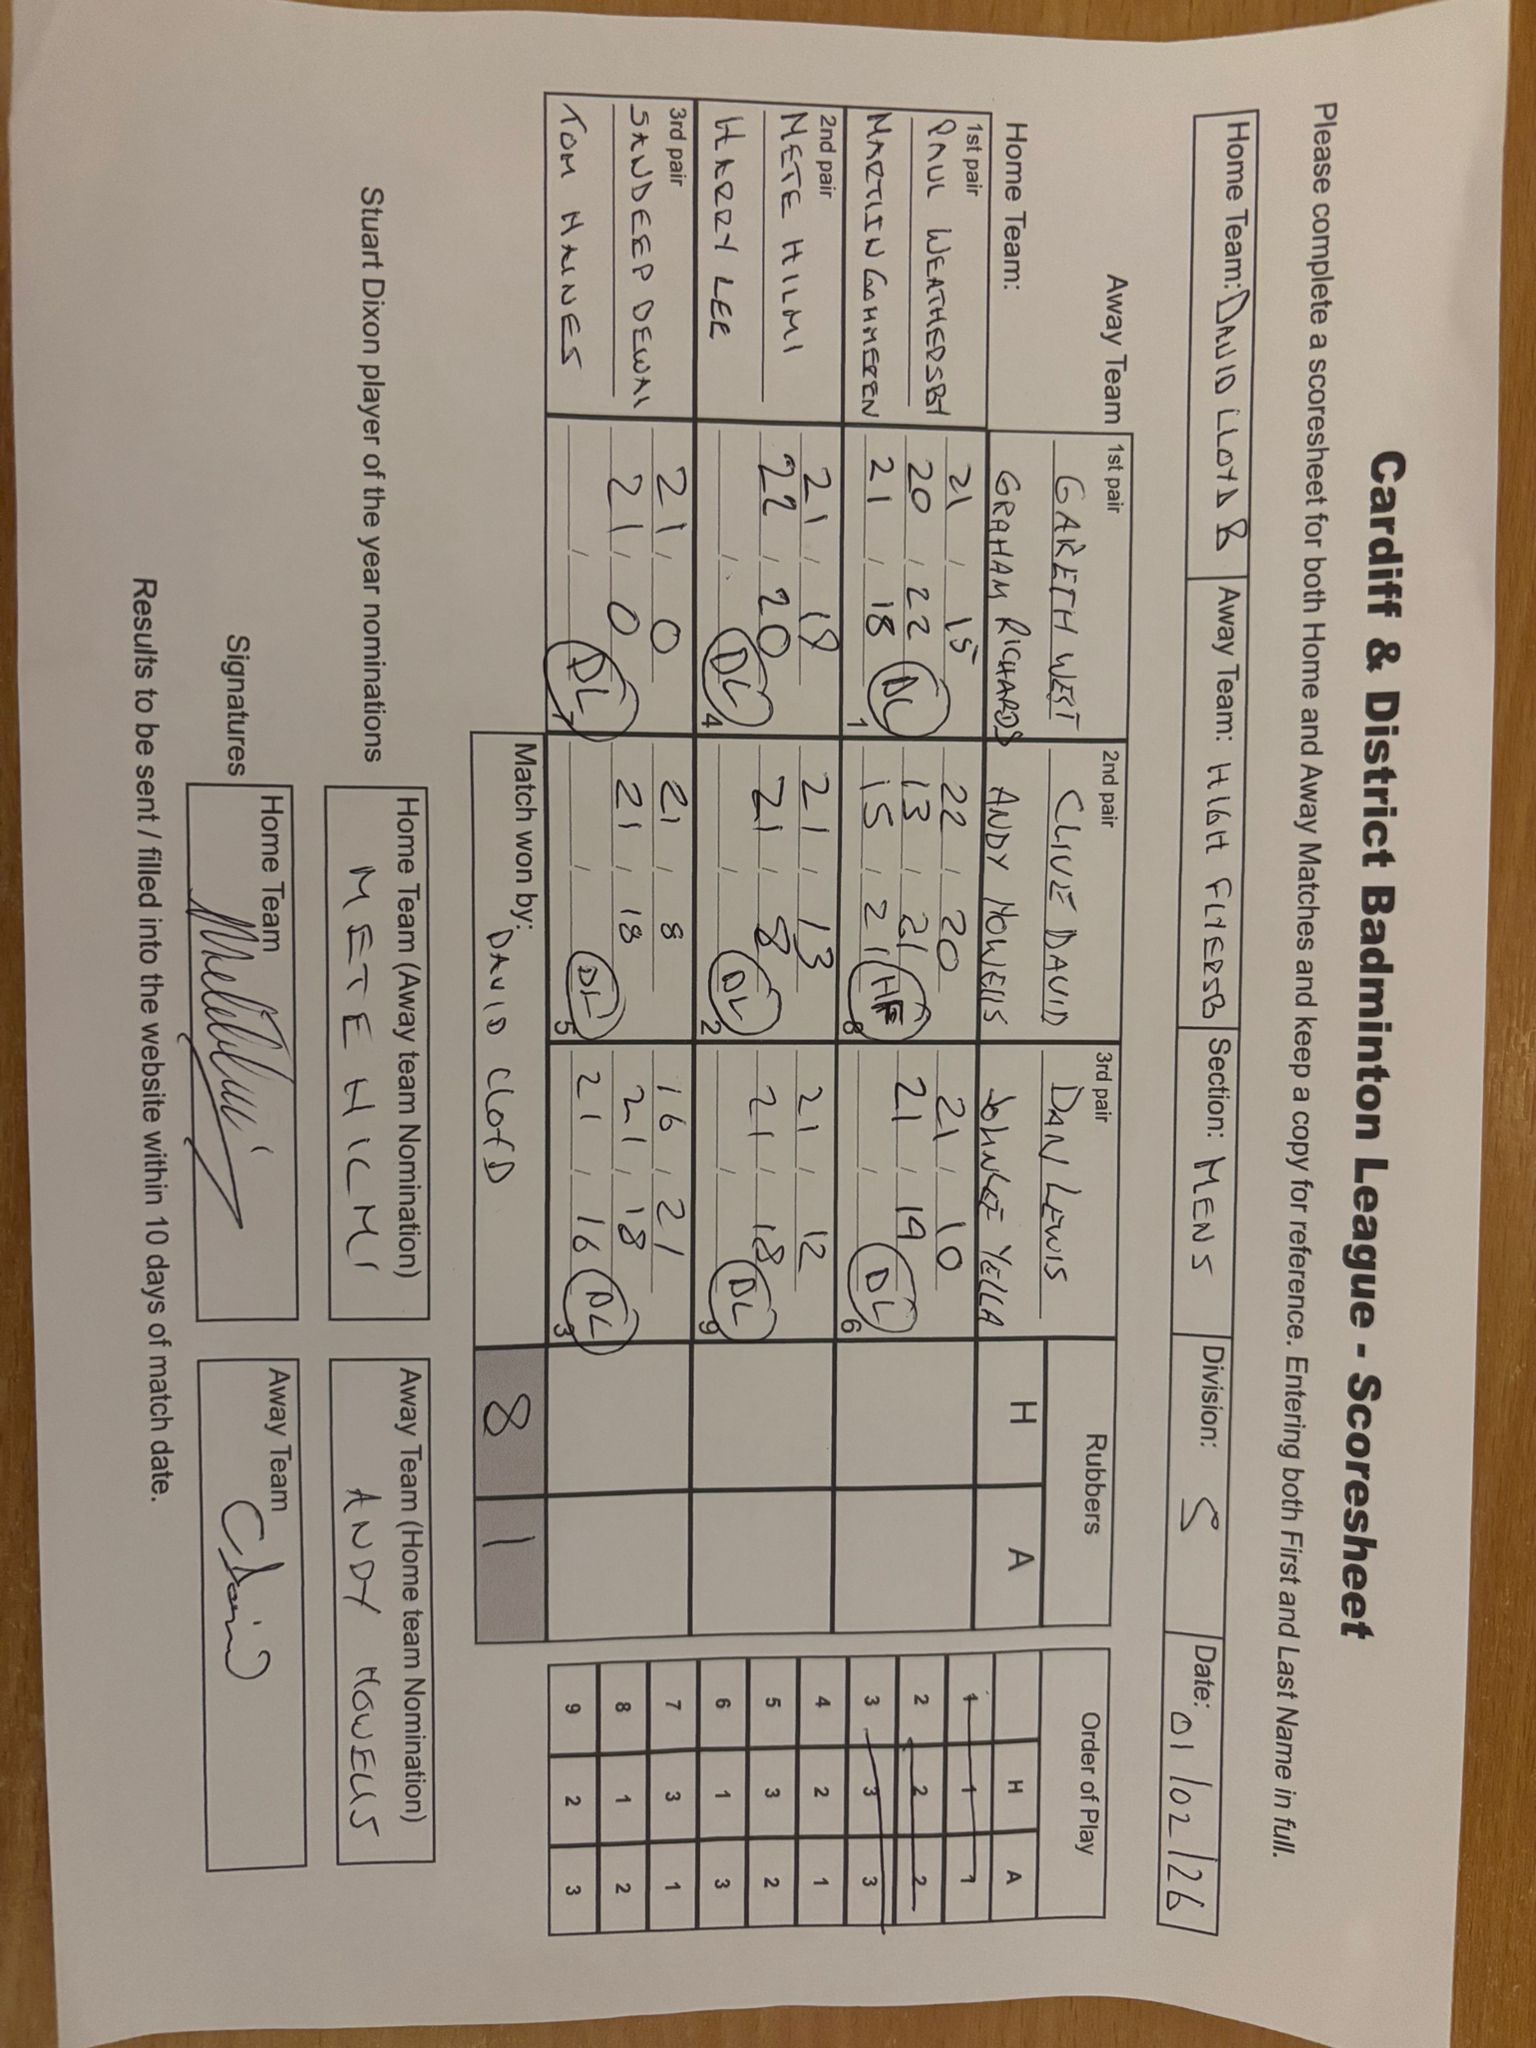 Cardiff & District Badminton League - Scoresheet
Please complete a scoresheet for both Home and Away Matches and keep a copy for reference. Entering both First and Last Name in full.
Home Team: DAVID LLOYD B Away Team: HIGH FLYERSB Section: MENS Division: 5 Date: 01/02/26
Away Team
1st pair GARETH WEST
GRAHAM RICHARDS
2nd pair CLIVE DAVID
ANDY HOWELLS
3rd pair DAN LEWIS
JOHNCE YELLA
Rubbers
H A
Home Team:
1st pair
PAUL WEATHERSBY
MARTIN
21, 15
20, 22
21, 18
DL
1
22, 20
13, 21
15, 21
HF
8
21, 10
21, 19
,
DL
6
2nd pair
METE HILMI
HARRY LEE
21, 19
22, 20
,
DL
4
21, 13
21, 8
,
DL
2
21, 12
21, 18
,
DL
9
3rd pair
SANDEEP DEWAN
TOM HAINES
21, 0
21, 0
,
DL
7
21, 8
21, 18
,
DL
5
16, 21
21, 18
21, 16
DL
3
Match won by: DAVID CLOYD 8 1
Order of Play
H A
1 1 1
2 2 2
3 3 3
4 2 1
5 3 2
6 1 3
7 3 1
8 1 2
9 2 3
Stuart Dixon player of the year nominations
Home Team (Away team Nomination)
METE HILMI
Away Team (Home team Nomination)
ANDY HOWELLS
Signatures
Home Team
Away Team
Results to be sent / filled into the website within 10 days of match date.